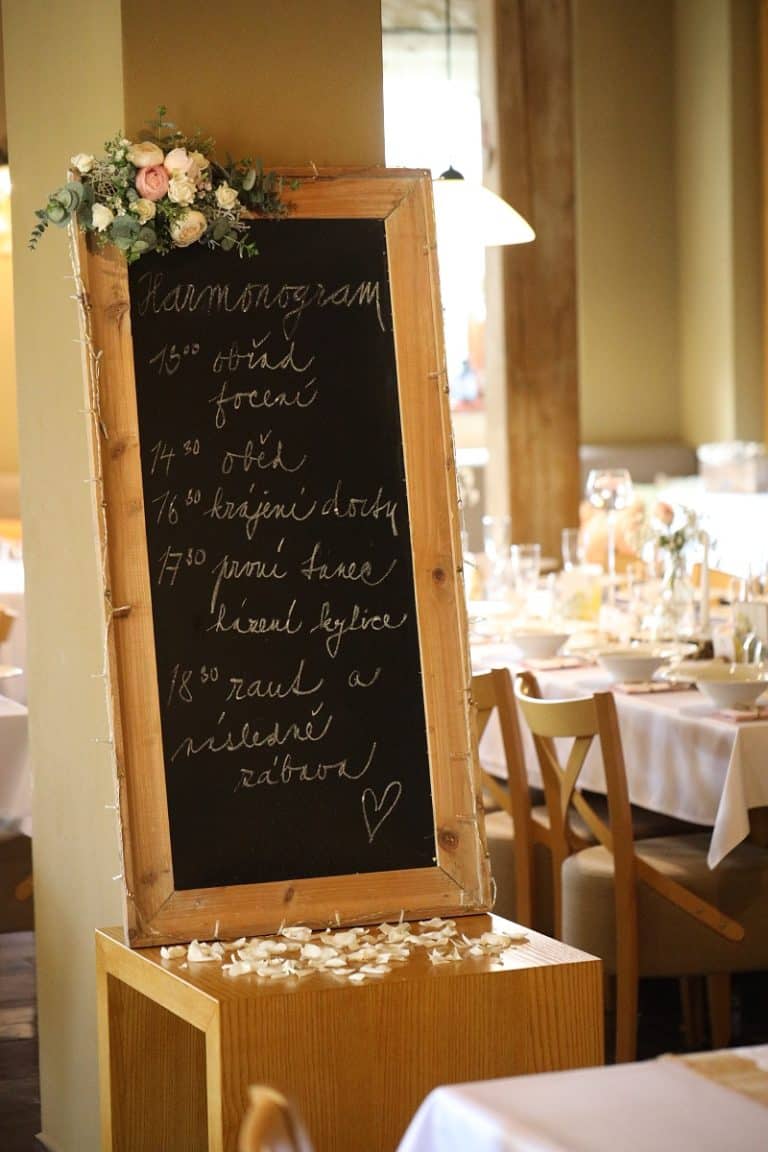 Harmonogram
13⁰⁰ obřad
focení
14³⁰ oběd
16³⁰ krájení dortu
17³⁰ první tanec
házení kytice
18³⁰ raut a
následně
zábava